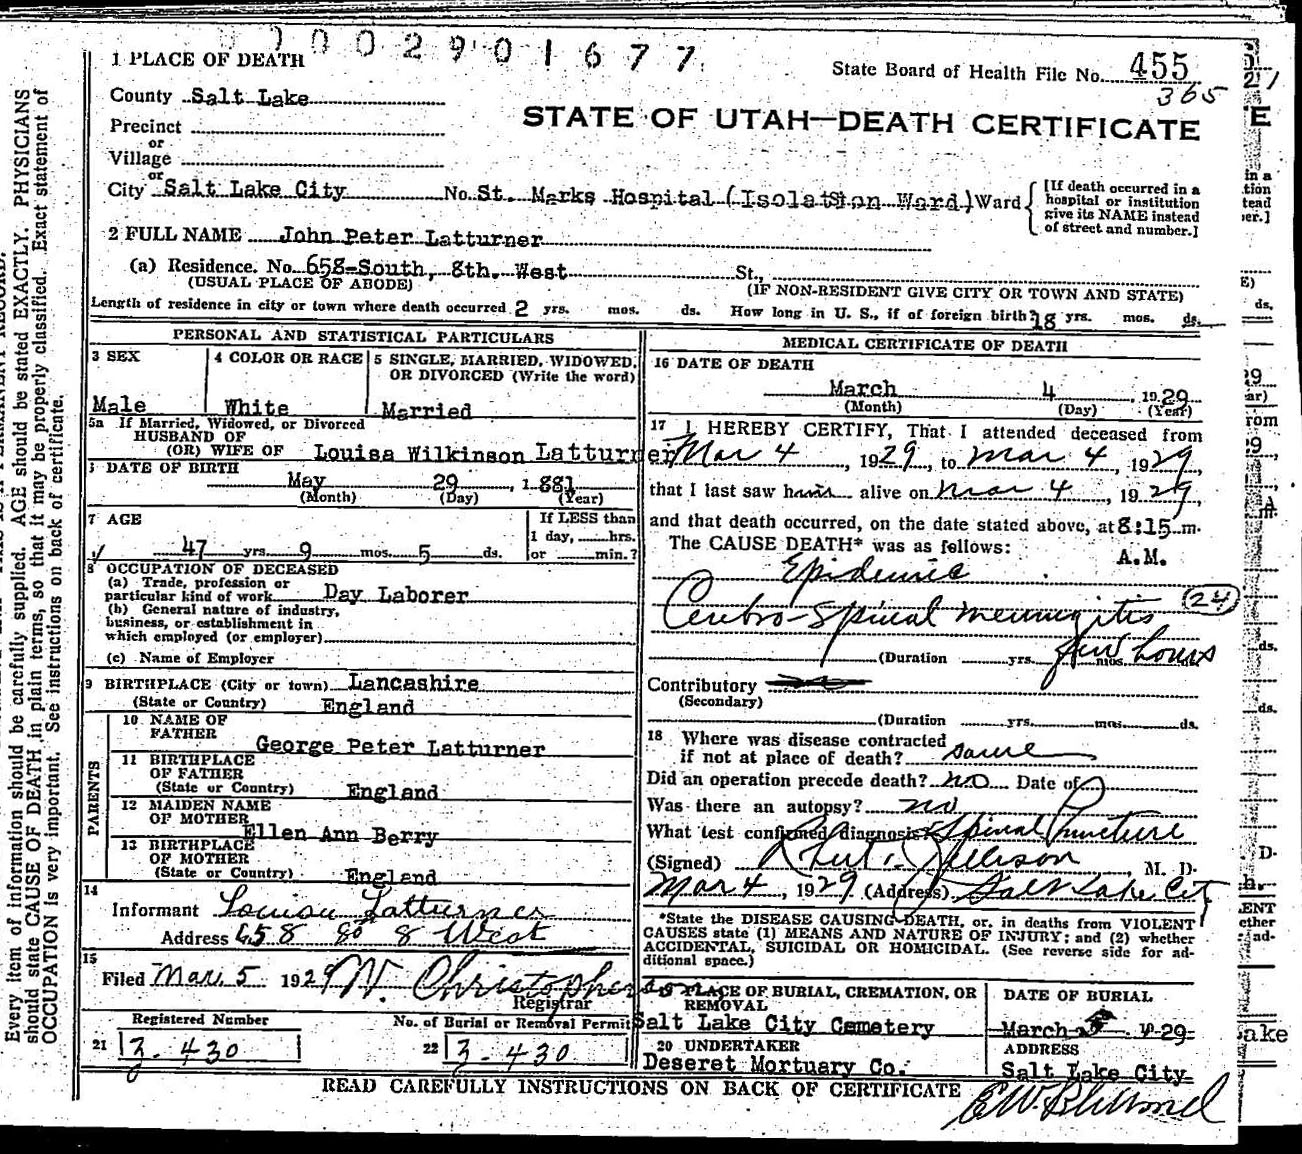 0002901677
1 PLACE OF DEATH
State Board of Health File No. 455
365
County Salt Lake
STATE OF UTAH—DEATH CERTIFICATE
Precinct
or
Village
or
City Salt Lake City No. St. Marks Hospital (Isolation Ward) Ward
[If death occurred in a hospital or institution give its NAME instead of street and number.]
2 FULL NAME John Peter Latturner
(a) Residence. No. 658-South, 8th. West St.,
(USUAL PLACE OF ABODE) (IF NON-RESIDENT GIVE CITY OR TOWN AND STATE)
Length of residence in city or town where death occurred 2 yrs. mos. ds. How long in U. S., if of foreign birth? 18 yrs. mos. ds.
PERSONAL AND STATISTICAL PARTICULARS
3 SEX
Male
4 COLOR OR RACE
White
5 SINGLE, MARRIED, WIDOWED, OR DIVORCED (Write the word)
Married
5a If Married, Widowed, or Divorced
HUSBAND OF
(OR) WIFE OF Louisa Wilkinson Latturner
DATE OF BIRTH
May 29, 1881
(Month) (Day) (Year)
7 AGE
47 yrs. 9 mos. 5 ds.
If LESS than
1 day, hrs.
or min.?
8 OCCUPATION OF DECEASED
(a) Trade, profession or
particular kind of work Day Laborer
(b) General nature of industry,
business, or establishment in
which employed (or employer)
(c) Name of Employer
9 BIRTHPLACE (City or town) Lancashire
(State or Country) England
PARENTS
10 NAME OF
FATHER
George Peter Latturner
11 BIRTHPLACE
OF FATHER
(State or Country) England
12 MAIDEN NAME
OF MOTHER
Ellen Ann Berry
13 BIRTHPLACE
OF MOTHER
(State or Country) England
14
Informant Louisa Latturner
Address 658 So 8 West
15
Filed Mar. 5 1929 W. Christopherson
Registrar
Registered Number
21 3-430
No. of Burial or Removal Permit
22 3-430
MEDICAL CERTIFICATE OF DEATH
16 DATE OF DEATH
March 4, 1929
(Month) (Day) (Year)
17 I HEREBY CERTIFY, That I attended deceased from
Mar 4, 1929, to Mar 4, 1929
that I last saw him alive on Mar 4, 1929,
and that death occurred, on the date stated above, at 8:15 m.
The CAUSE DEATH* was as follows: A.M.
Epidemic
Cerebro-Spinal Meningitis (24)
(Duration yrs. mos. few hours
Contributory
(Secondary)
(Duration yrs. mos. ds.
18 Where was disease contracted
if not at place of death? same
Did an operation precede death? no Date of
Was there an autopsy? no
What test confirmed diagnosis? Spinal Puncture
(Signed) M. D.
Mar 4, 1929 (Address) Salt Lake City
*State the DISEASE CAUSING DEATH, or, in deaths from VIOLENT
CAUSES state (1) MEANS AND NATURE OF INJURY; and (2) whether
ACCIDENTAL, SUICIDAL OR HOMICIDAL. (See reverse side for ad-
ditional space.)
19 PLACE OF BURIAL, CREMATION, OR
REMOVAL
Salt Lake City Cemetery
DATE OF BURIAL
March 1929
20 UNDERTAKER
Deseret Mortuary Co.
ADDRESS
Salt Lake City
READ CAREFULLY INSTRUCTIONS ON BACK OF CERTIFICATE
Every item of information should be carefully supplied. AGE should be stated EXACTLY. PHYSICIANS
should state CAUSE OF DEATH in plain terms, so that it may be properly classified. Exact statement of
OCCUPATION is very important. See instructions on back of certificate.